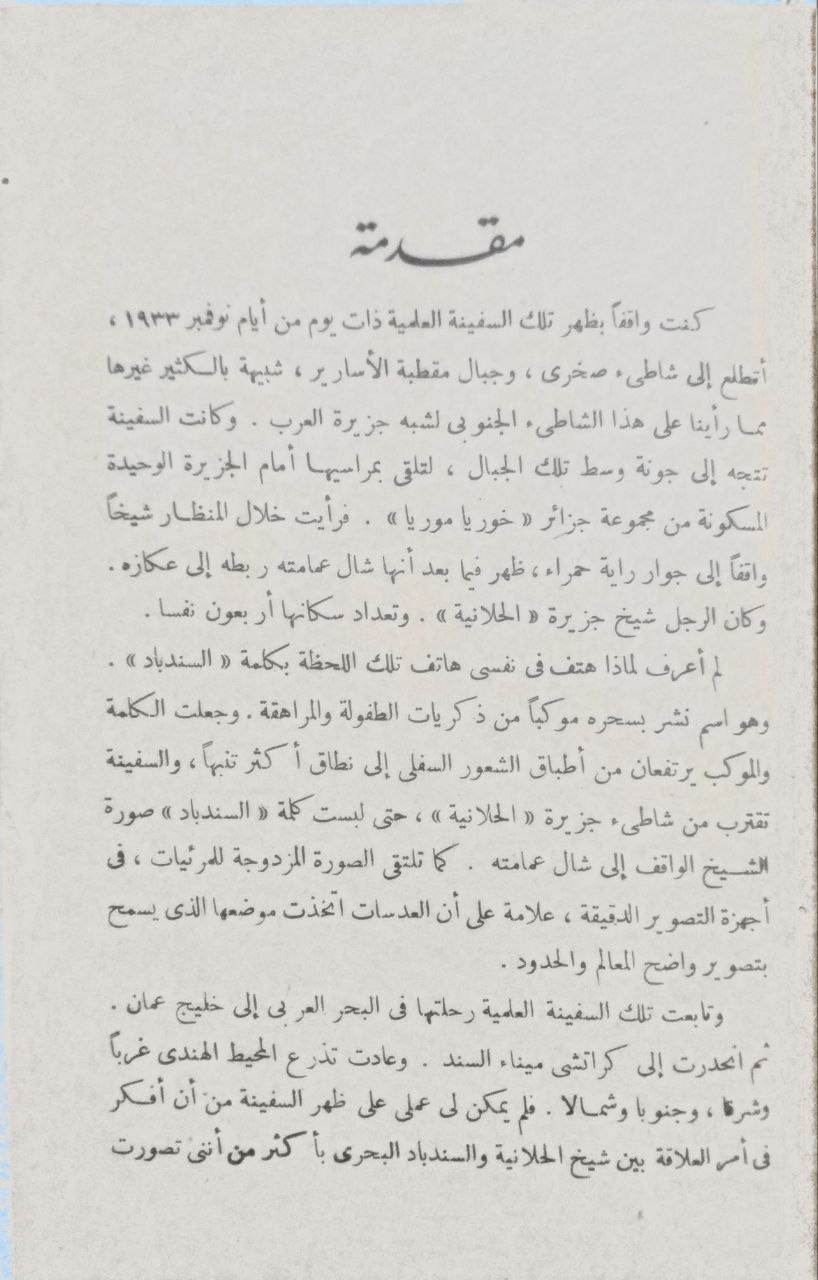 مقدمة
كنت واقفاً بظهر تلك السفينة العلمية ذات يوم من أيام نوفمبر ١٩٣٣ ،
أتطلع إلى شاطىء صخرى ، وجبال مقطبة الأسارير ، شبيهة بالكثير غيرها
مما رأينا على هذا الشاطىء الجنوبى لشبه جزيرة العرب . وكانت السفينة
تتجه إلى جونة وسط تلك الجبال ، لتلقى بمراسيها أمام الجزيرة الوحيدة
المسكونة من مجموعة جزائر « خوريا موريا » . فرأيت خلال المنظار شيخاً
واقفاً إلى جوار راية حمراء ، ظهر فيما بعد أنها شال عمامته ربطه إلى عكازه .
وكان الرجل شيخ جزيرة « الحلانية » . وتعداد سكانها أربعون نفسا .
لم أعرف لماذا هتف فى نفسى هاتف تلك اللحظة بكلمة « السندباد » .
وهو اسم نشر بسحره موكباً من ذكريات الطفولة والمراهقة . وجعلت الكلمة
والموكب يرتفعان من أطباق الشعور السفلى إلى نطاق أكثر تنبهاً ، والسفينة
تقترب من شاطىء جزيرة « الحلانية » ، حتى لبست كلمة « السندباد » صورة
الشيخ الواقف إلى شال عمامته . كما تلتقى الصورة المزدوجة للمرئيات ، فى
أجهزة التصوير الدقيقة ، علامة على أن العدسات اتخذت موضعها الذى يسمح
بتصوير واضح المعالم والحدود .
وتابعت تلك السفينة العلمية رحلتها فى البحر العربى إلى خليج عمان .
ثم انحدرت إلى كراتشى ميناء السند . وعادت تذرع المحيط الهندى غرباً
وشرقا ، وجنوبا وشمالا . فلم يمكن لى عملى على ظهر السفينة من أن أفكر
فى أمر العلاقة بين شيخ الحلانية والسندباد البحرى بأكثر من أننى تصورت